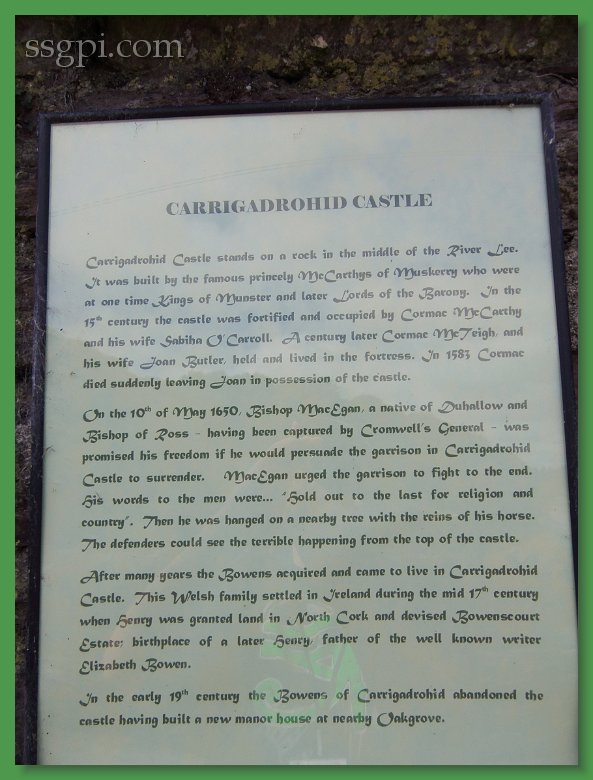 ssgpi.com
CARRIGADROHID CASTLE
Carrigadrohid Castle stands on a rock in the middle of the River Lee.
It was built by the famous princely McCarthys of Muskerry who were
at one time Kings of Munster and later Lords of the Barony. In the
15th century the castle was fortified and occupied by Cormac McCarthy
and his wife Sabiha O'Carroll. A century later Cormac McTeigh, and
his wife Joan Butler, held and lived in the fortress. In 1583 Cormac
died suddenly leaving Joan in possession of the castle.
On the 10th of May 1650, Bishop MacEgan, a native of Duhallow and
Bishop of Ross - having been captured by Cromwell's General - was
promised his freedom if he would persuade the garrison in Carrigadrohid
Castle to surrender. MacEgan urged the garrison to fight to the end.
His words to the men were... "Hold out to the last for religion and
country". Then he was hanged on a nearby tree with the reins of his horse.
The defenders could see the terrible happening from the top of the castle.
After many years the Bowens acquired and came to live in Carrigadrohid
Castle. This Welsh family settled in Ireland during the mid 17th century
when Henry was granted land in North Cork and devised Bowenscourt
Estate; birthplace of a later Henry, father of the well known writer
Elizabeth Bowen.
In the early 19th century the Bowens of Carrigadrohid abandoned the
castle having built a new manor house at nearby Oakgrove.